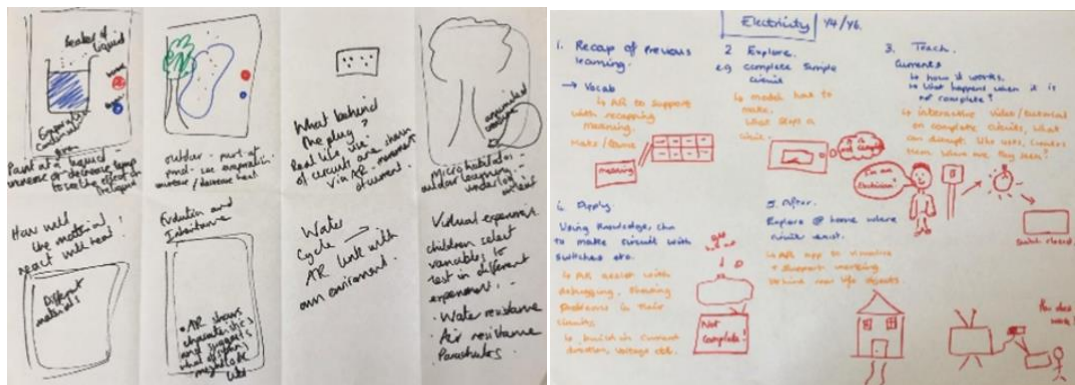 Beaker of
liquid
Point at a liquid -
increase or decrease temp
to see the effect on
the liquid
outdoor - point at
pond - see evaporation
increase / decrease heat
What behind
the plug?
Real life use
of circuits are shown
via AR - movement
of current.
Microhabitats -
outdoor learning -
How will
the material
react with heat?
Different
materials
Evolution and
Inheritance
• AR shows
characteristics
and suggests
what offspring
might look
like
Water
Cycle →
AR link with
own environment.
Virtual experiment
children select
variables to
test in different
experiments -
• Water resistance
• Air resistance
Parachutes
Electricity Y4/Y6.
1. Recap of Previous
learning.
→ Vocab
↳ AR to support
with recapping
meaning.
meaning
2 Explore.
eg complete simple
circuit
↳ model how to
make,
what stops a
circuit.
3. Teach.
Currents
↳ how it works.
↳ What happens when it is
not complete?
↳ interactive video/tutorial
on complete circuits, what
can disrupt, like uses, circuits
them where are they seen?
I'm an
electrician!
Switch closed.
4. Apply
Using knowledge, chn
to make circuit with
switches etc.
↳ AR assist with
debugging, showing
problems in their
circuits
↳ built in current
direction, voltage etc.
Not
Complete!
5. After.
Explore @ home where
circuits exist.
↳ AR app to visualise
+ support working
behind real life objects.
How does
work!